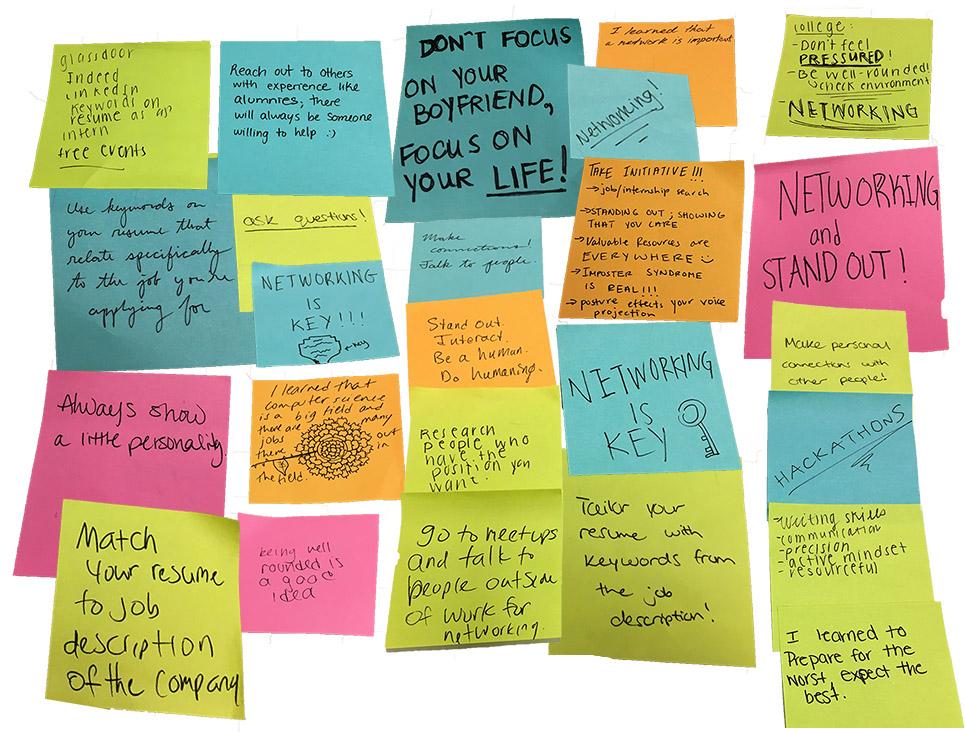 glassdoor
Indeed
LinkedIn
keywords on
resume as an
intern
free events
Reach out to others
with experience like
alumnies; there
will always be someone
willing to help :)
DON'T FOCUS
ON YOUR
BOYFRIEND,
FOCUS ON
YOUR LIFE!
I learned that
a network is important.
Networking!
college:
-Don't feel
PRESSURED!
-Be well-rounded!
check environment
-NETWORKING
Use keywords on
your resume that
relate specifically
to the job you're
applying for
ask questions!
NETWORKING
IS
KEY!!!
key
Make
connections!
Talk to people.
TAKE INITIATIVE!!!
→job/internship search
→STANDING OUT; SHOWING
THAT YOU CARE
→Valuable Resources are
EVERYWHERE
→IMPOSTER SYNDROME
IS REAL!!!
→posture effects your voice
projection
NETWORKING
and
STAND OUT!
Stand out.
Interact.
Be a human.
Do humaning.
Make personal
connections with
other people!
Always show
a little personality.
I learned that
computer science
is a big field and
there are many
jobs out
there in
the field.
Research
people who
have the
position you
want.
NETWORKING
IS
KEY
HACKATHONS
Match
your resume
to job
description
of the company
being well
rounded is
a good
idea
go to meetups
and talk to
people outside
of work for
networking.
Tailor your
resume with
keywords from
the job
description!
-Writing skills
-communication
-precision
-active mindset
-resourceful
I learned to
Prepare for the
worst, expect the
best.